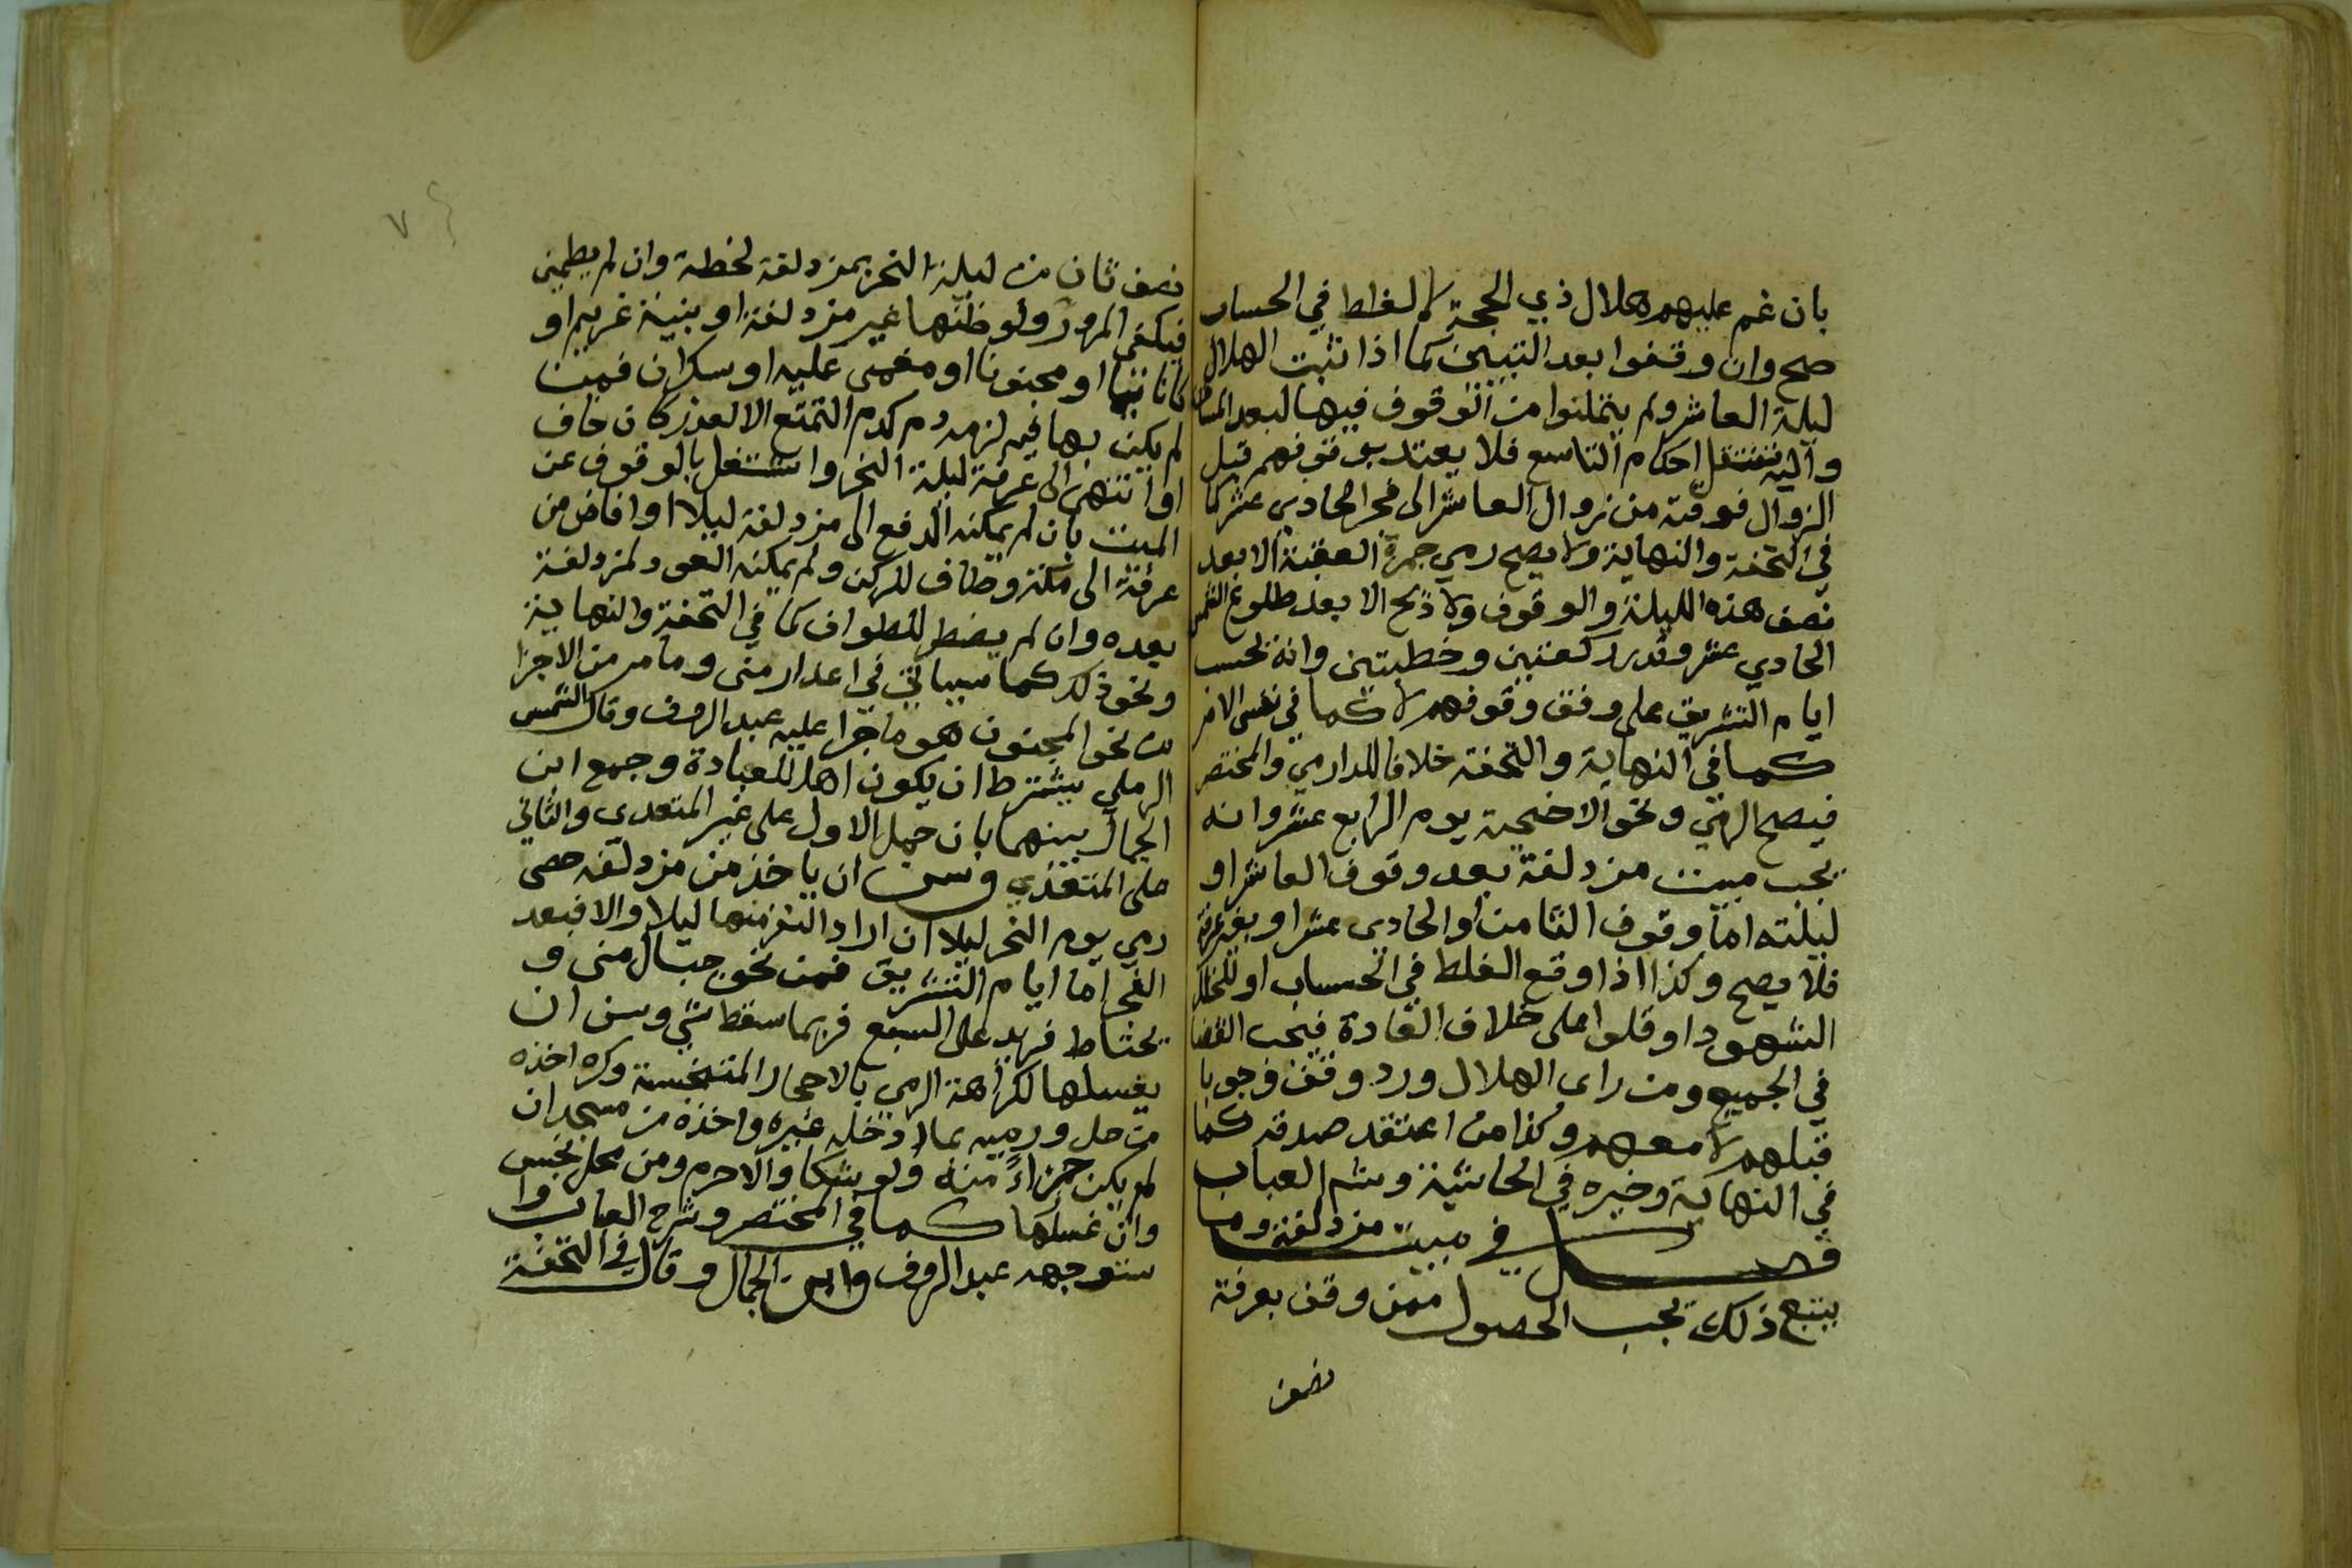 بان غم عليهم هلال ذي الحجة لا لغلط في الحساب
صح وان وقفوا بعد التبين كما اذا ثبت الهلال
ليلة العاشر ولم يتمكنوا من الوقوف فيها لبعد المسافة
واليه تنتقل احكام التاسع فلا يعتد بوقوفهم قبل
الزوال فوقته من زوال العاشر الى فجر الحادي عشر كما
في التحفة والنهاية ولا يصح رمي جمرة العقبة الا بعد
نصف هذه الليلة والوقوف ولا ذبح الا بعد طلوع الشمس
الحادي عشر وقدر ركعتين وخطبتين وانه تحسب
ايام التشريق على وفق وقوفهم لا كما في نفس الامر
كما في النهاية والتحفة خلافا للدارمي والمختصر
فيصح الرمي ونحو الاضحية يوم الرابع عشر وانه
يجب مبيت مزدلفة بعد وقوف العاشر او
ليلته اما وقوف الثامن او الحادي عشر او بغير عرفة
فلا يصح وكذا اذا وقع الغلط في الحساب او لخلل
الشهود او قلوا على خلاف العادة فيجب القضا
في الجميع ومن راى الهلال ورد وقف وجوبا
قبلهم لا معهم وكذا من اعتقد صدقه كما
في النهاية وخبره في الحاشية وشم العباب
فصل في مبيت مزدلفة وما
يتبع ذلك يجب الحصول ممن وقف بعرفة
نصف
٧
نصف ثان من ليلة النحر بمزدلفة لحظة وان لم يطمين
فيكفي المرور ولو ظنها غير مزدلفة او بنية غريم او
كانا نيما او مجنونا او مغمى عليه او سكران فمن
لم يكن بها فيه لزمه دم كدم التمتع الا لعذر كان خاف
او انتهى الى عرفة ليلة النحر واشتغل بالوقوف عن
المبيت بان لم يمكنه الدفع الى مزدلفة ليلا او افاض من
عرفة الى مكة وطاف للركن ولم يمكنه العود لمزدلفة
بعده وان لم يضطر للطواف كما في التحفة والنهاية
ونحو ذلك كما سياتي في اعذار منى وما مر من الاجزا
من نحو المجنون هو ما جرا عليه عبد الروف وقال الشمس
الرملي يشترط ان يكون اهلا للعبادة وجمع ابن
الجمال بينهما بان حمل الاول على غير المتعدي والثاني
على المتعدي وسن ان ياخذ من مزدلفة حصى
رمي يوم النحر ليلا ان اراد النفر منها ليلا والا فبعد
الفجر اما ايام التشريق فمن نحو جبال منى و
يحتاط فيزيد على السبع فربما سقط شي وسن ان
يغسلها لكراهة الرمي بالاحجار المتنجسة وكره اخذه
من حل ورميه بما ادخله غيره واخذه من مسجد ان
لم يكن جزاءً منه ولو شكا والا حرم ومن محل نجس
وان غسلها كما في المختصر وشرح العباب وا
ستوجهه عبد الروف وابن الجمال وقال في التحفة